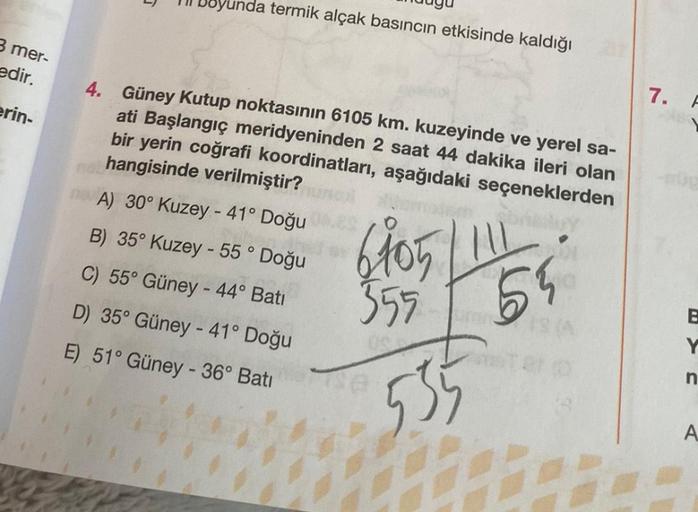 boyunda termik alçak basıncın etkisinde kaldığı
3 mer-
edir.
erin-
4. Güney Kutup noktasının 6105 km. kuzeyinde ve yerel sa-
ati Başlangıç meridyeninden 2 saat 44 dakika ileri olan
bir yerin coğrafi koordinatları, aşağıdaki seçeneklerden
hangisinde verilmiştir?
A) 30° Kuzey - 41° Doğu
B) 35° Kuzey - 55 ° Doğu
C) 55° Güney - 44° Batı
D) 35° Güney - 41° Doğu
E) 51° Güney - 36° Batı
6105 111
555
535
7.
B
Y
n
A